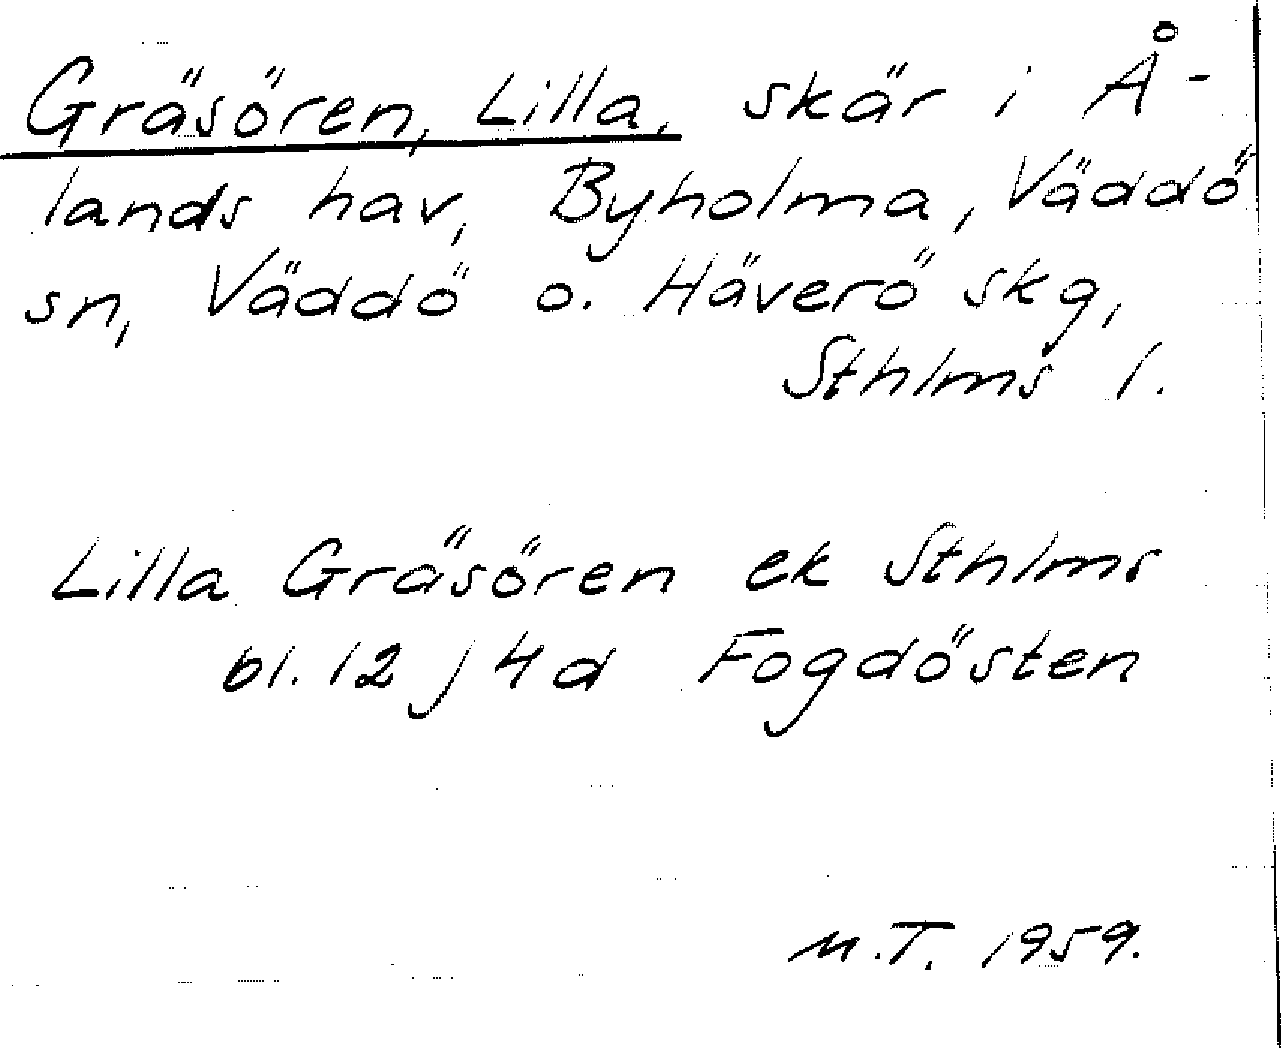 Gräsören, Lilla, skär i Å-
lands hav, Byholma, Väddö
sn, Väddö o. Häverö skg,
Sthlms l.
Lilla Gräsören ek Sthlms
bl. 12 j 4d Fogdösten
M.T. 1959.